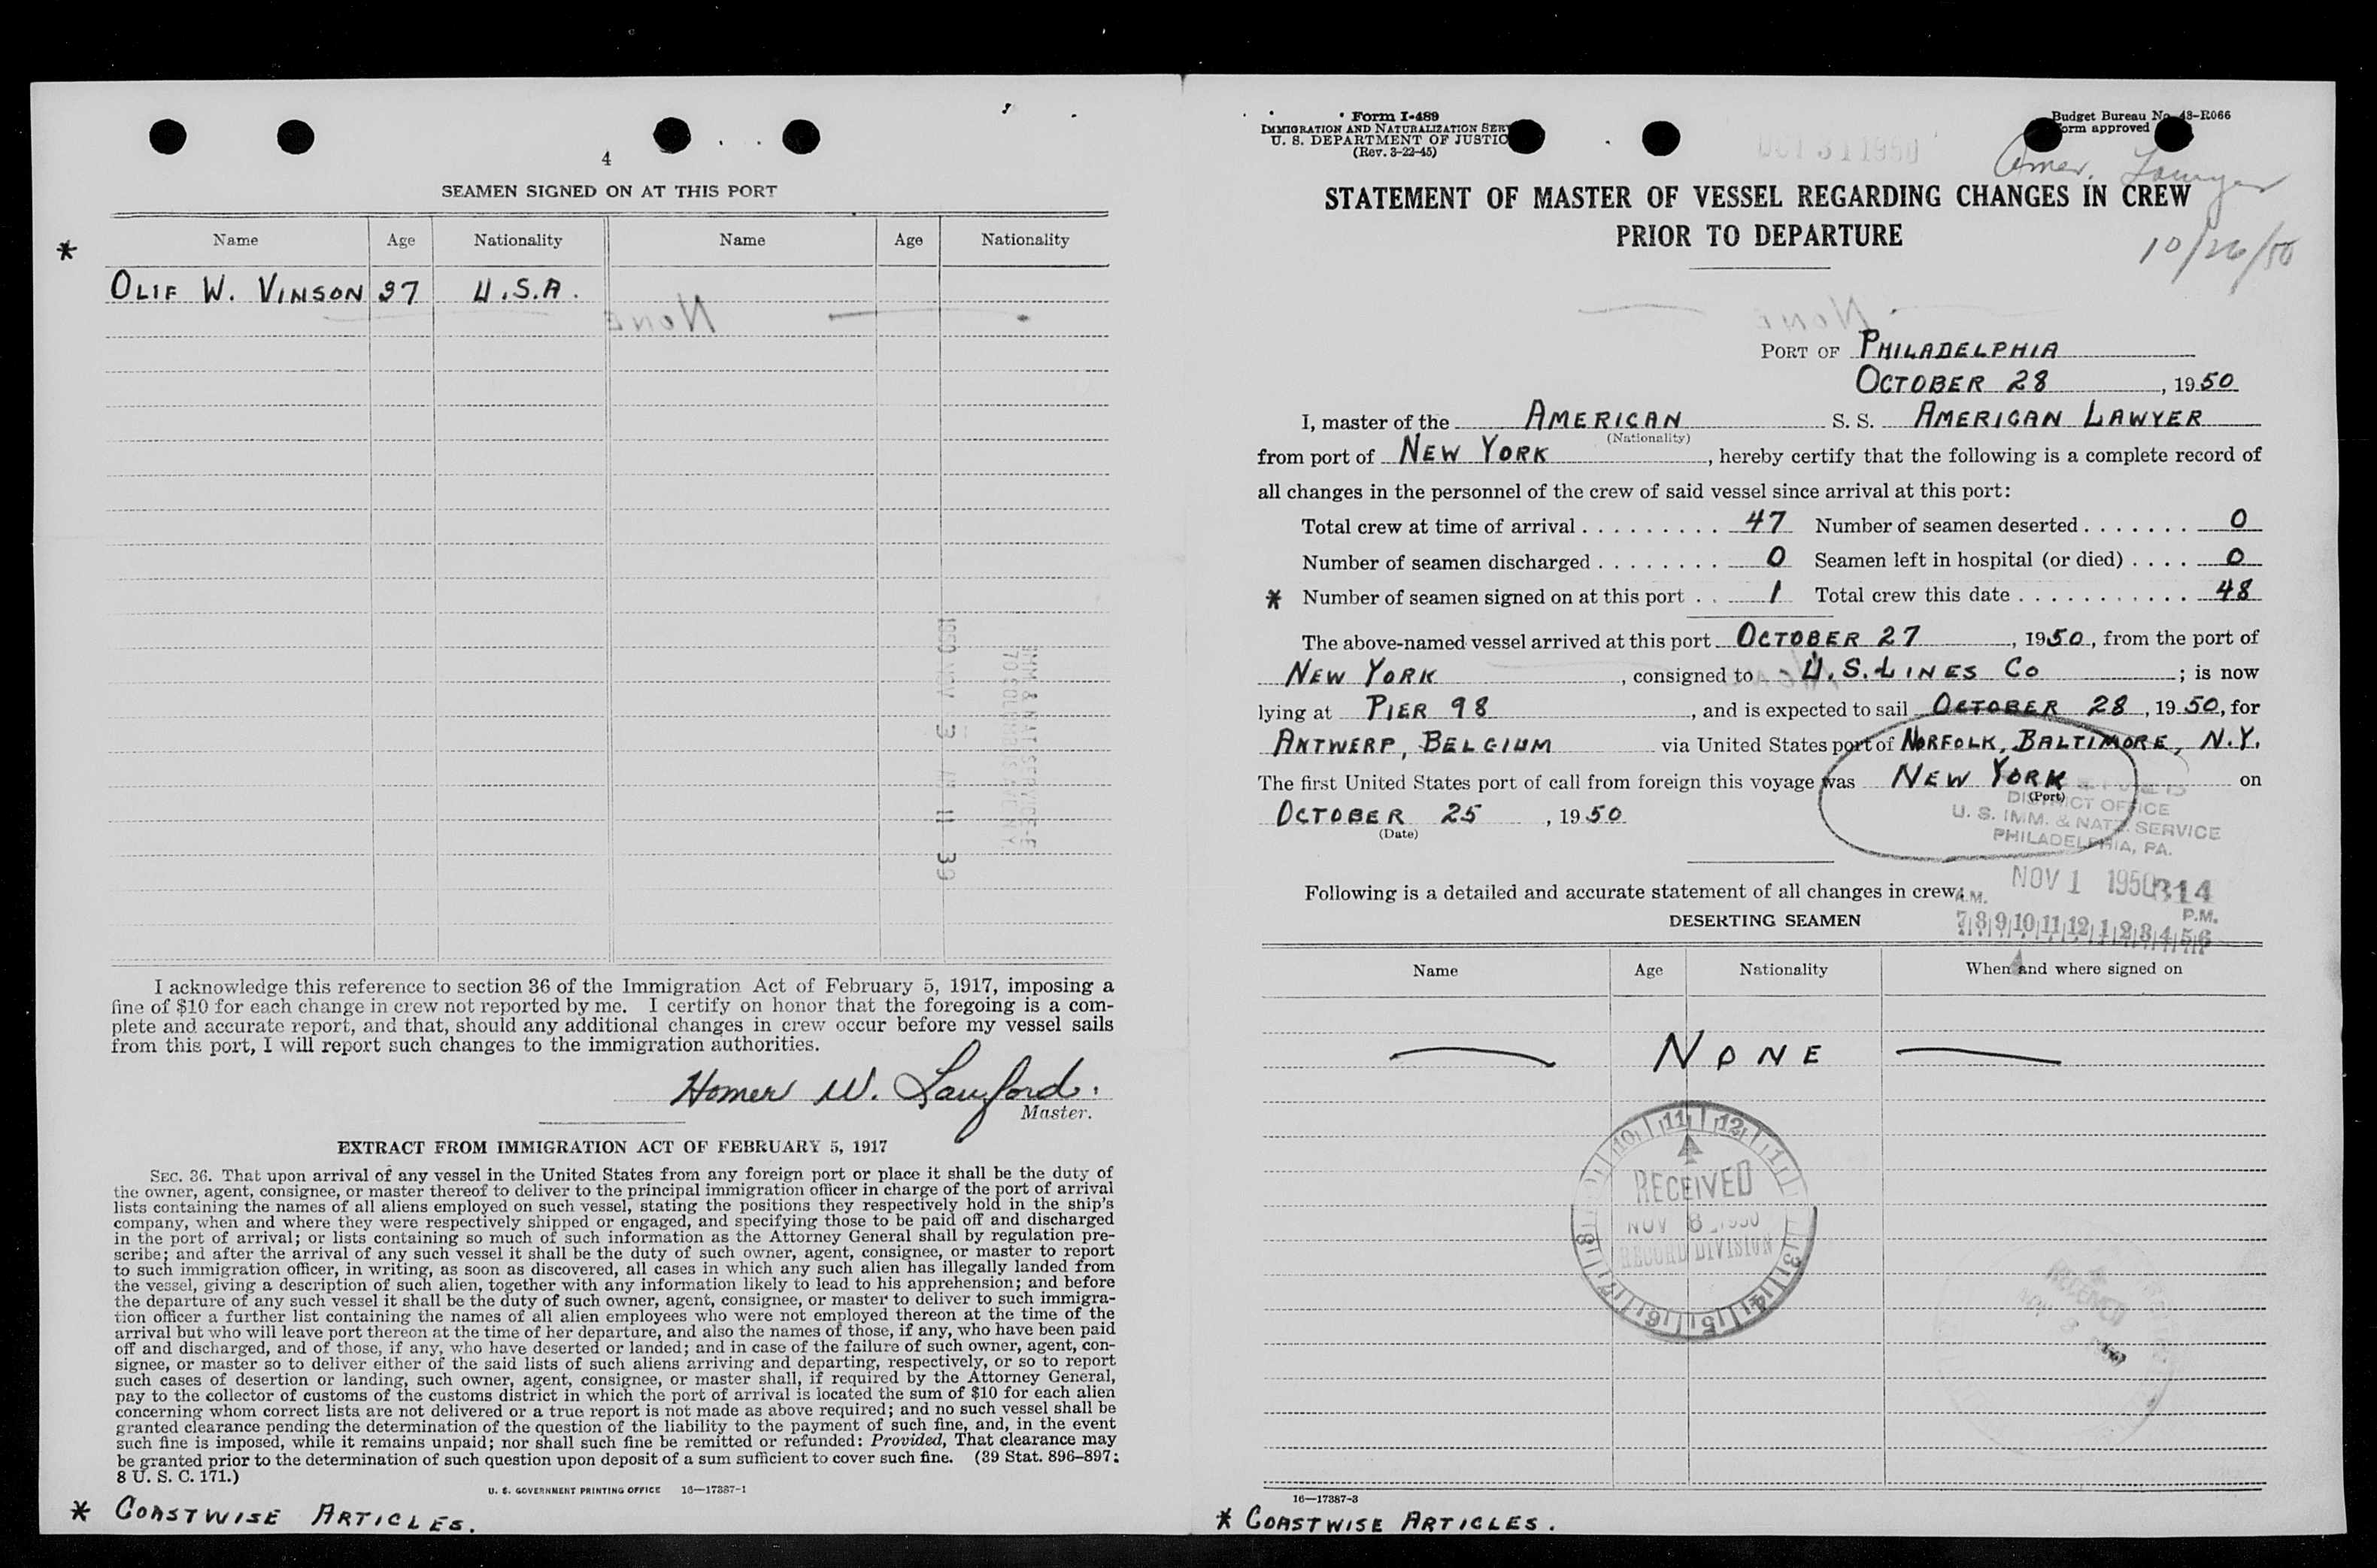 4
SEAMEN SIGNED ON AT THIS PORT
*
Name Age Nationality Name Age Nationality
OLIF W. VINSON 37 U.S.A.
I acknowledge this reference to section 36 of the Immigration Act of February 5, 1917, imposing a
fine of $10 for each change in crew not reported by me. I certify on honor that the foregoing is a com-
plete and accurate report, and that, should any additional changes in crew occur before my vessel sails
from this port, I will report such changes to the immigration authorities.
Homer W. Lanford.
Master.
EXTRACT FROM IMMIGRATION ACT OF FEBRUARY 5, 1917
SEC. 36. That upon arrival of any vessel in the United States from any foreign port or place it shall be the duty of
the owner, agent, consignee, or master thereof to deliver to the principal immigration officer in charge of the port of arrival
lists containing the names of all aliens employed on such vessel, stating the positions they respectively hold in the ship's
company, when and where they were respectively shipped or engaged, and specifying those to be paid off and discharged
in the port of arrival; or lists containing so much of such information as the Attorney General shall by regulation pre-
scribe; and after the arrival of any such vessel it shall be the duty of such owner, agent, consignee, or master to report
to such immigration officer, in writing, as soon as discovered, all cases in which any such alien has illegally landed from
the vessel, giving a description of such alien, together with any information likely to lead to his apprehension; and before
the departure of any such vessel it shall be the duty of such owner, agent, consignee, or master to deliver to such immigra-
tion officer a further list containing the names of all alien employees who were not employed thereon at the time of the
arrival but who will leave port thereon at the time of her departure, and also the names of those, if any, who have been paid
off and discharged, and of those, if any, who have deserted or landed; and in case of the failure of such owner, agent, con-
signee, or master so to deliver either of the said lists of such aliens arriving and departing, respectively, or so to report
such cases of desertion or landing, such owner, agent, consignee, or master shall, if required by the Attorney General,
pay to the collector of customs of the customs district in which the port of arrival is located the sum of $10 for each alien
concerning whom correct lists are not delivered or a true report is not made as above required; and no such vessel shall be
granted clearance pending the determination of the question of the liability to the payment of such fine, and, in the event
such fine is imposed, while it remains unpaid; nor shall such fine be remitted or refunded: Provided, That clearance may
be granted prior to the determination of such question upon deposit of a sum sufficient to cover such fine. (39 Stat. 896-897;
8 U. S. C. 171.)
U. S. GOVERNMENT PRINTING OFFICE 16—17387-1
* COASTWISE ARTICLES.
Form I-489
IMMIGRATION AND NATURALIZATION SER
U. S. DEPARTMENT OF JUSTIC
(Rev. 3-22-45)
OCT 31 1950
Budget Bureau No. 43-R066
Form approved
Amer. Lawyer
STATEMENT OF MASTER OF VESSEL REGARDING CHANGES IN CREW
PRIOR TO DEPARTURE
10/26/50
PORT OF PHILADELPHIA
OCTOBER 28, 1950
I, master of the AMERICAN S. S. AMERICAN LAWYER
(Nationality)
from port of NEW YORK, hereby certify that the following is a complete record of
all changes in the personnel of the crew of said vessel since arrival at this port:
Total crew at time of arrival . . . . . . . . . 47 Number of seamen deserted . . . . . . . 0
Number of seamen discharged . . . . . . . . 0 Seamen left in hospital (or died) . . . . 0
* Number of seamen signed on at this port . . 1 Total crew this date . . . . . . . . . . . 48
The above-named vessel arrived at this port OCTOBER 27, 1950, from the port of
NEW YORK, consigned to U.S. LINES CO; is now
lying at PIER 98, and is expected to sail OCTOBER 28, 1950, for
ANTWERP, BELGIUM via United States port of NORFOLK, BALTIMORE, N.Y.
The first United States port of call from foreign this voyage was NEW YORK on
(Port)
OCTOBER 25, 1950
(Date)
DISTRICT OFFICE
U. S. IMM. & NATZ. SERVICE
PHILADELPHIA, PA.
NOV 1 1950 314
Following is a detailed and accurate statement of all changes in crew:
A.M. P.M.
7 8 9 10 11 12 1 2 3 4 5 6
DESERTING SEAMEN
Name Age Nationality When and where signed on
NONE
10 11 12 1 3 4 5 6 7 8
RECEIVED
NOV 8 1950
RECORD DIVISION
RECEIVED
NOV 8
16—17387-3
* COASTWISE ARTICLES.